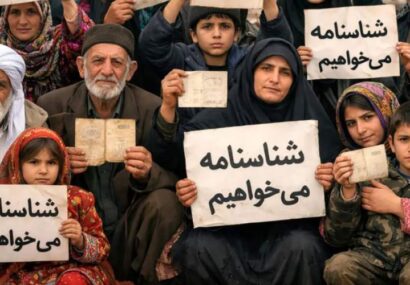 شناسنامه
می‌خواهیم
شناسنامه
می‌خواهیم
شناسنامه
می‌خواهیم